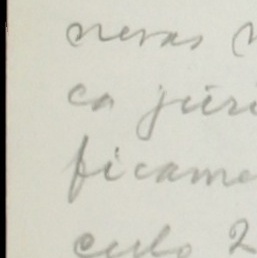 neras
ca júri
ficame
culo 2